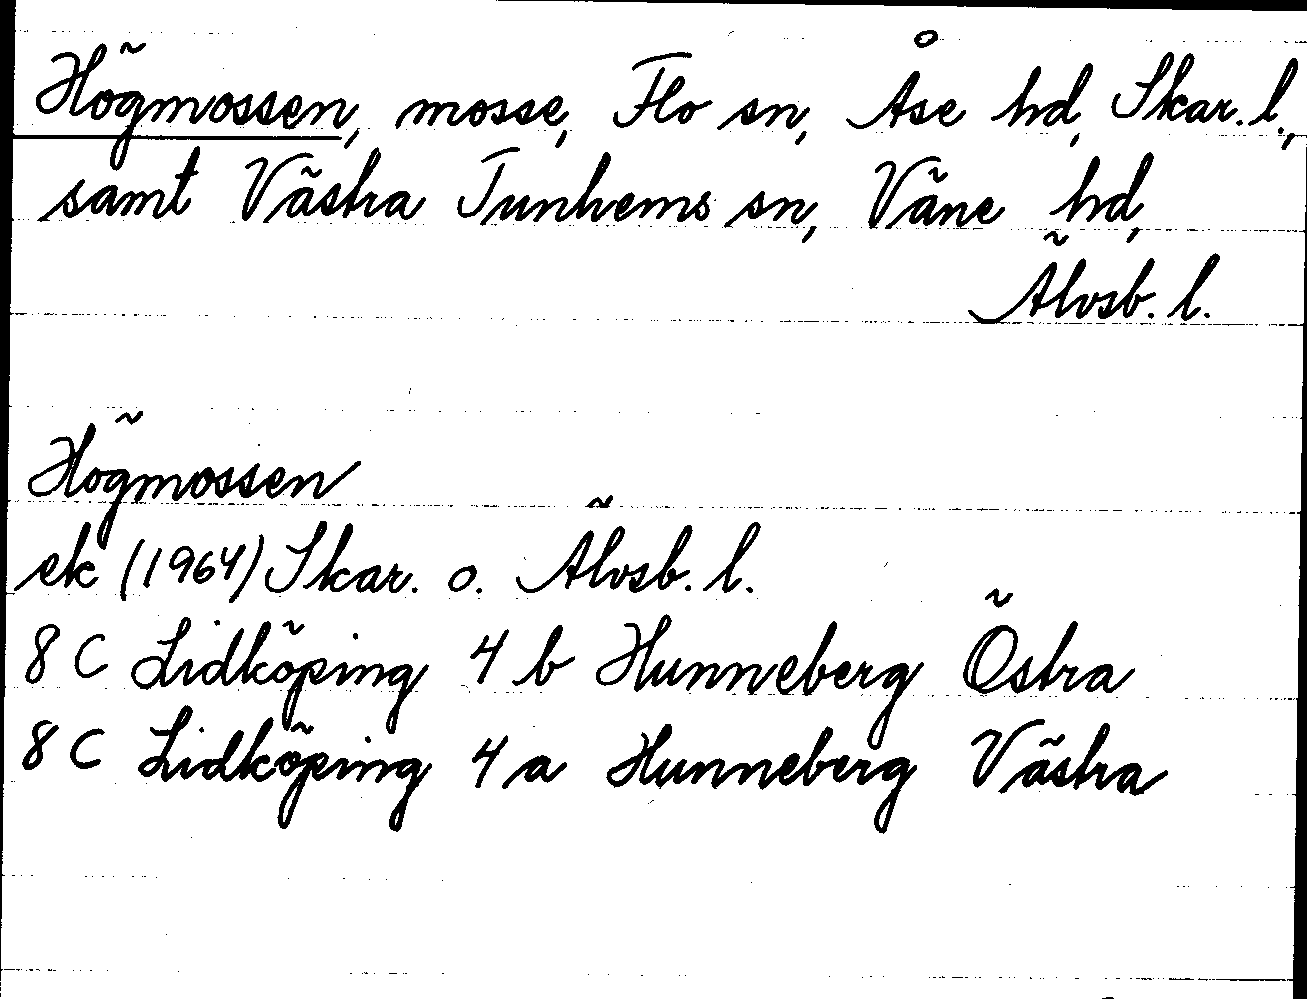 Högmossen, mosse, Flo sn, Åse hd, Skar. l.,
samt Västra Tunhems sn, Väne hd,
Älvsb. l.
Högmossen
ek (1964) Skar. o. Älvsb. l.
8 C Lidköping 4 b Hunneberg Östra
8 C Lidköping 4 a Hunneberg Västra